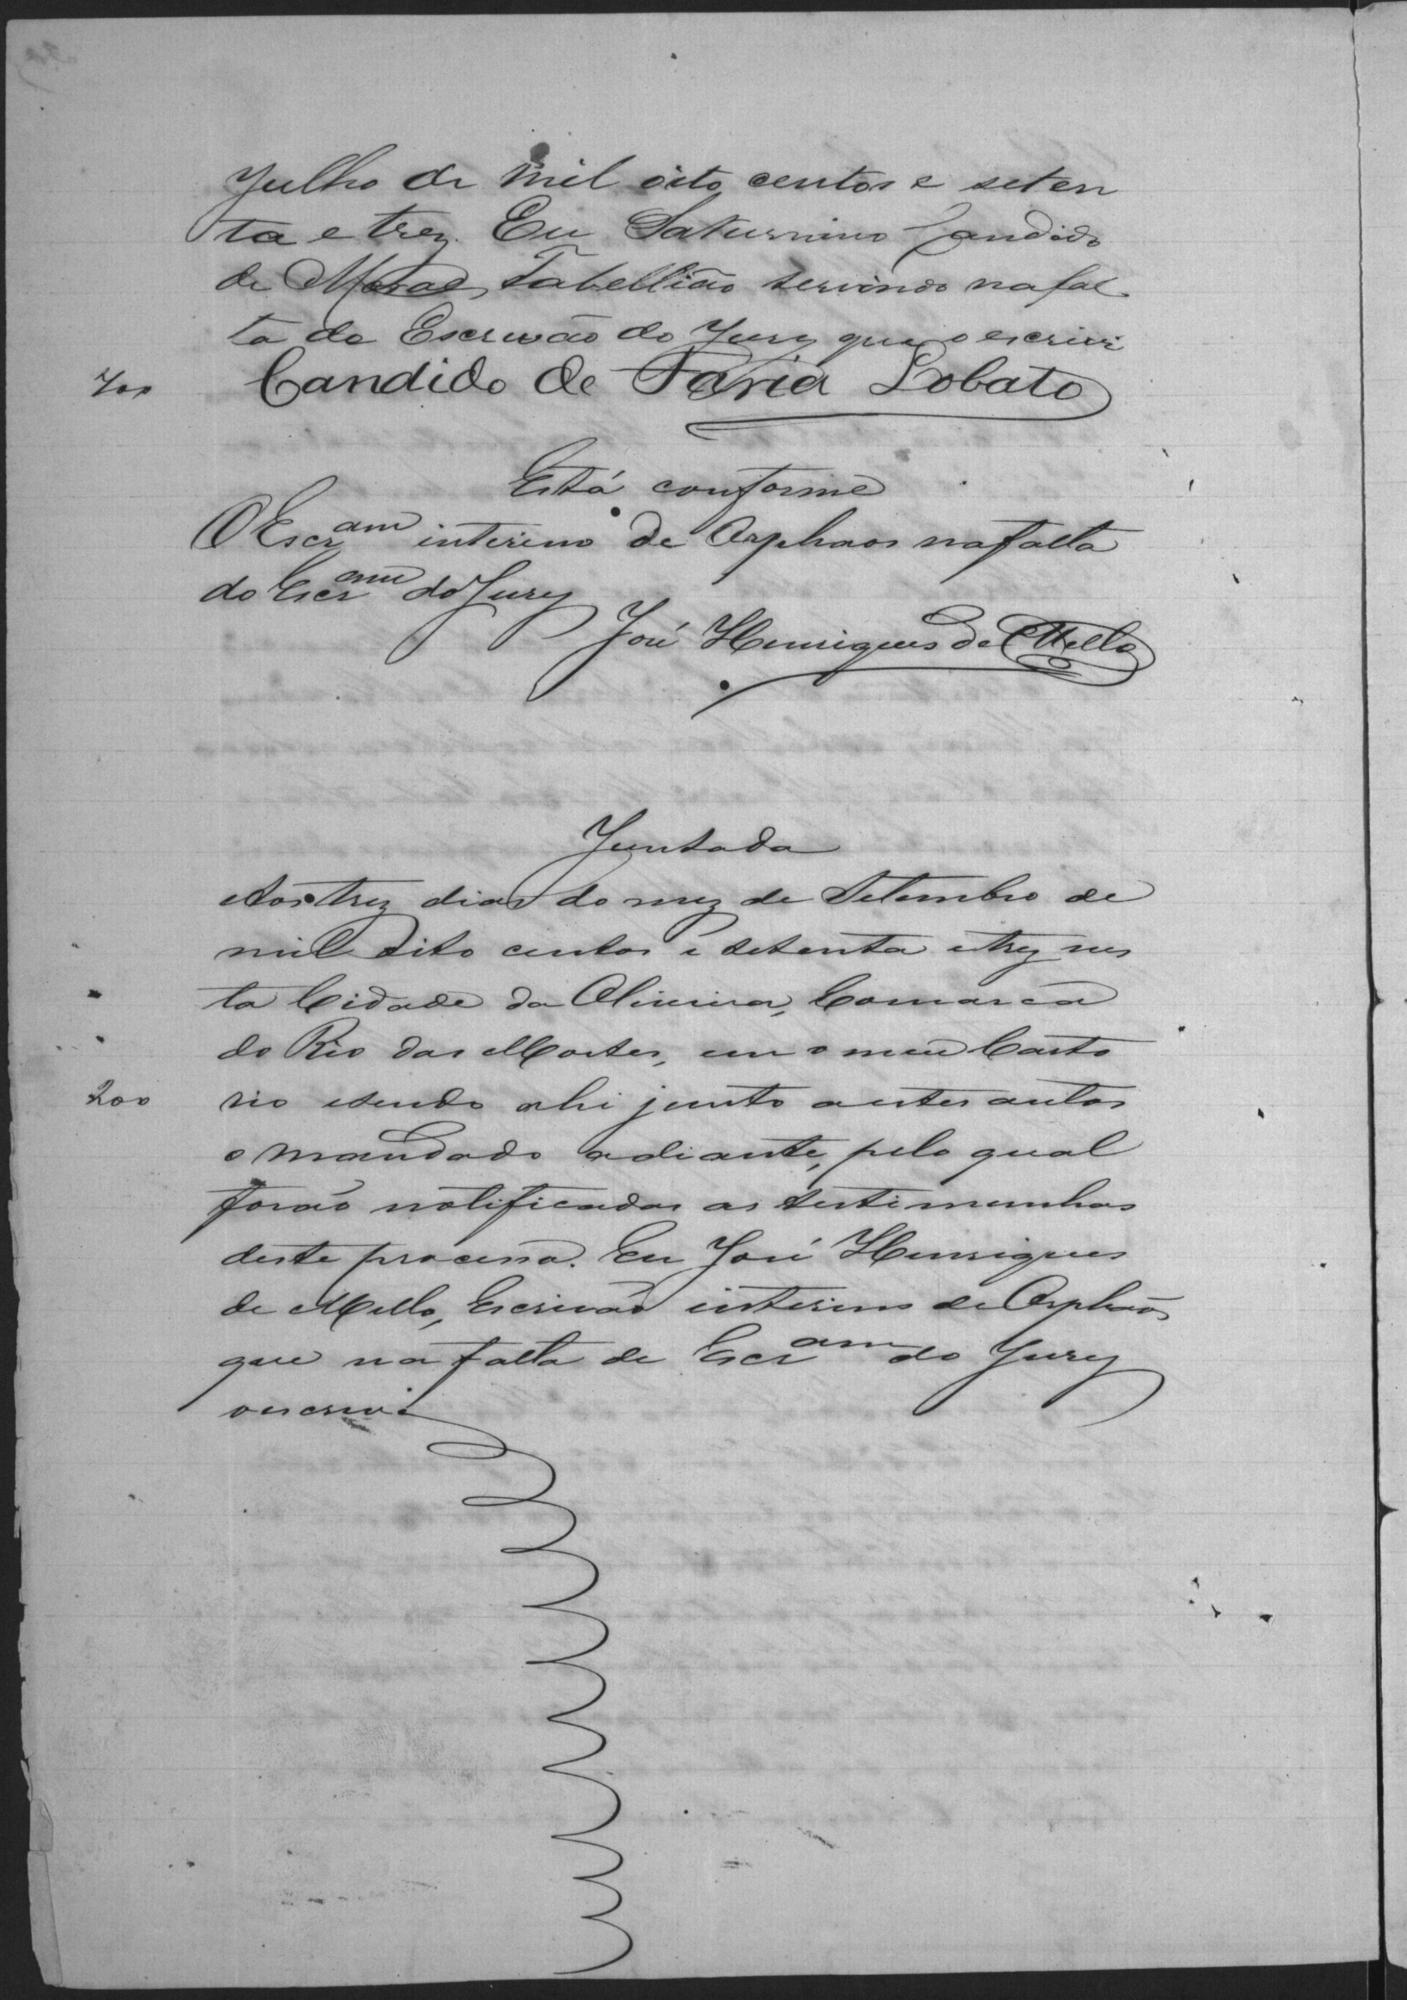 Julho de mil oito centos e seten
ta e trez. Eu Saturnino Candido
de Moraes, Tabellião servindo na fal
ta do Escrivão do Jury que o escrivi
700 Candido de Faria Lobato
Está conforme
O Escram interino de Orphaos na falta
do Escram do Jury
José Henriques de Mello
Juntada
Aos trez dias do mez de Setembro de
mil oito centos e setenta e trez nes
ta Cidade da Oliveira, Comarca
do Rio das Mortes, em o meu Carto
200 rio e sendo ahi junto a estes autos
o mandado adiante, pelo qual
forão notificadas as testimunhas
deste processo. Eu José Henriques
de Mello, Escrivão interino de Orphãos,
que na falta de Escram do Jury
o escrevi